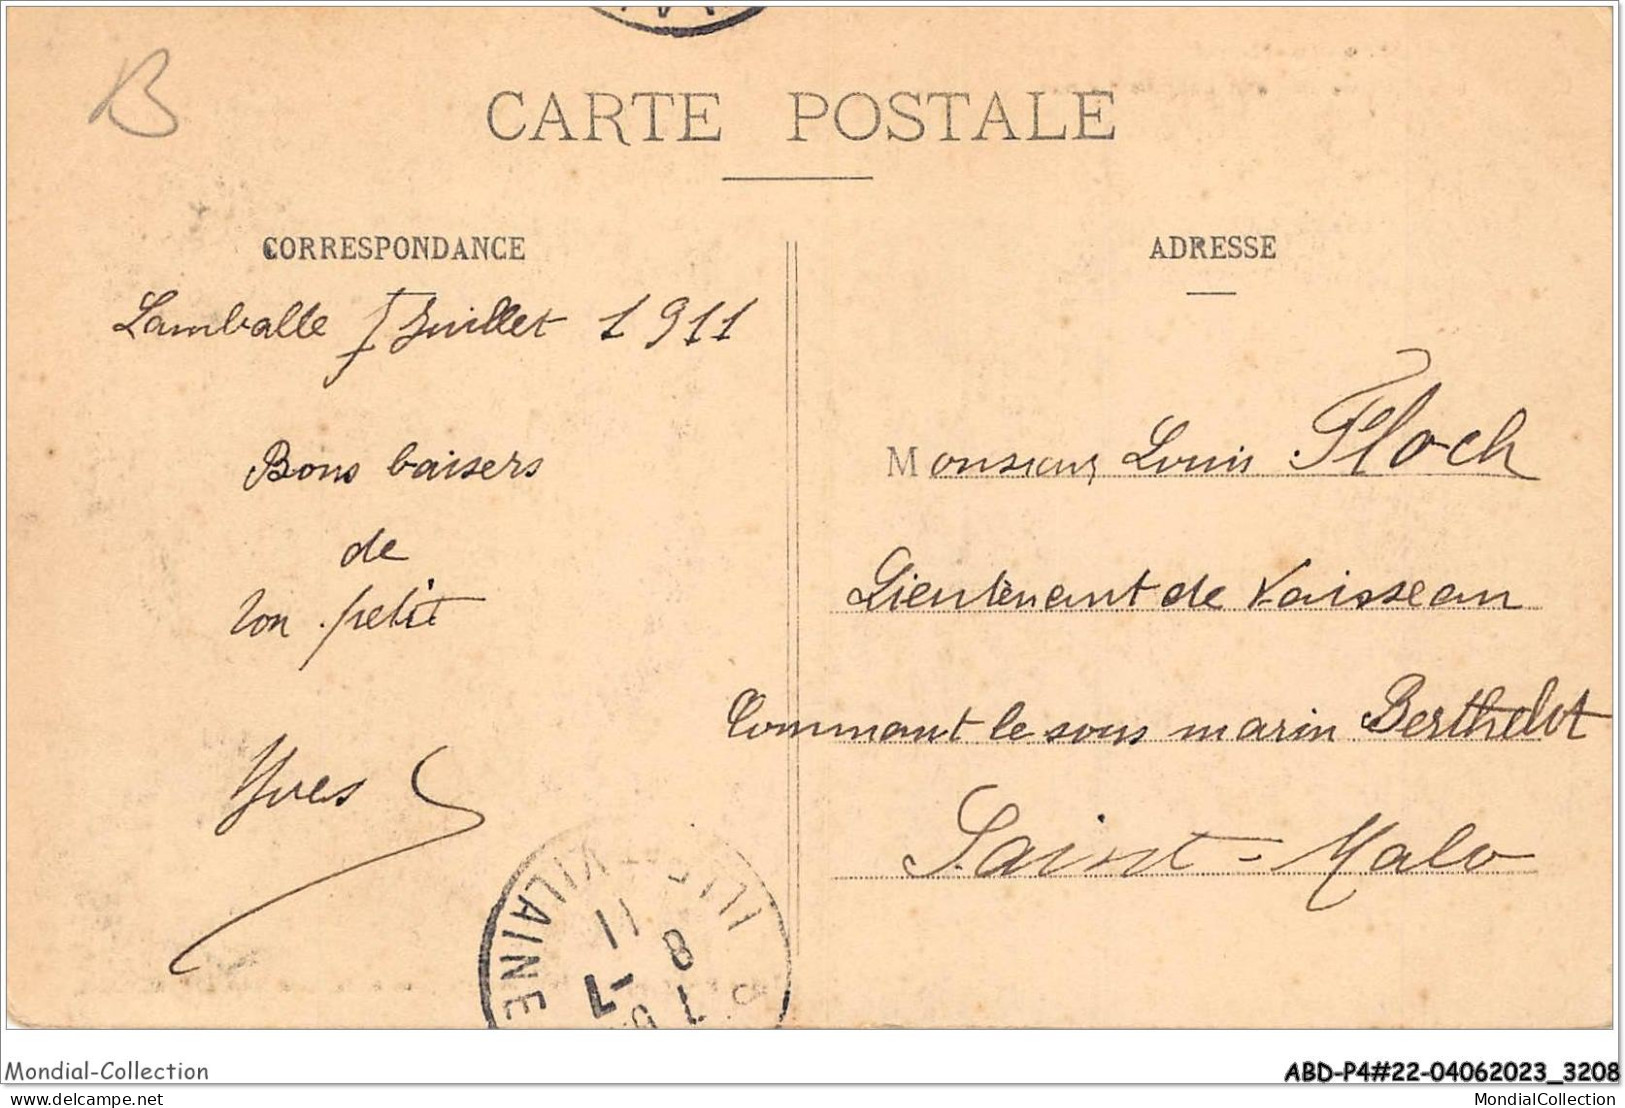 B
CARTE POSTALE
CORRESPONDANCE
Lamballe 7 Juillet 1911
Bons baisers
de
ton petit
Yves
ADRESSE
Monsieur Louis Floch
Lieutenant de Vaisseau
Commant le sous marin Berthelot
Saint-Malo
VILAINE
11
8
-7
Mondial-Collection
ABD-P4#22-04062023_3208
delcampe.net
MondialCollection